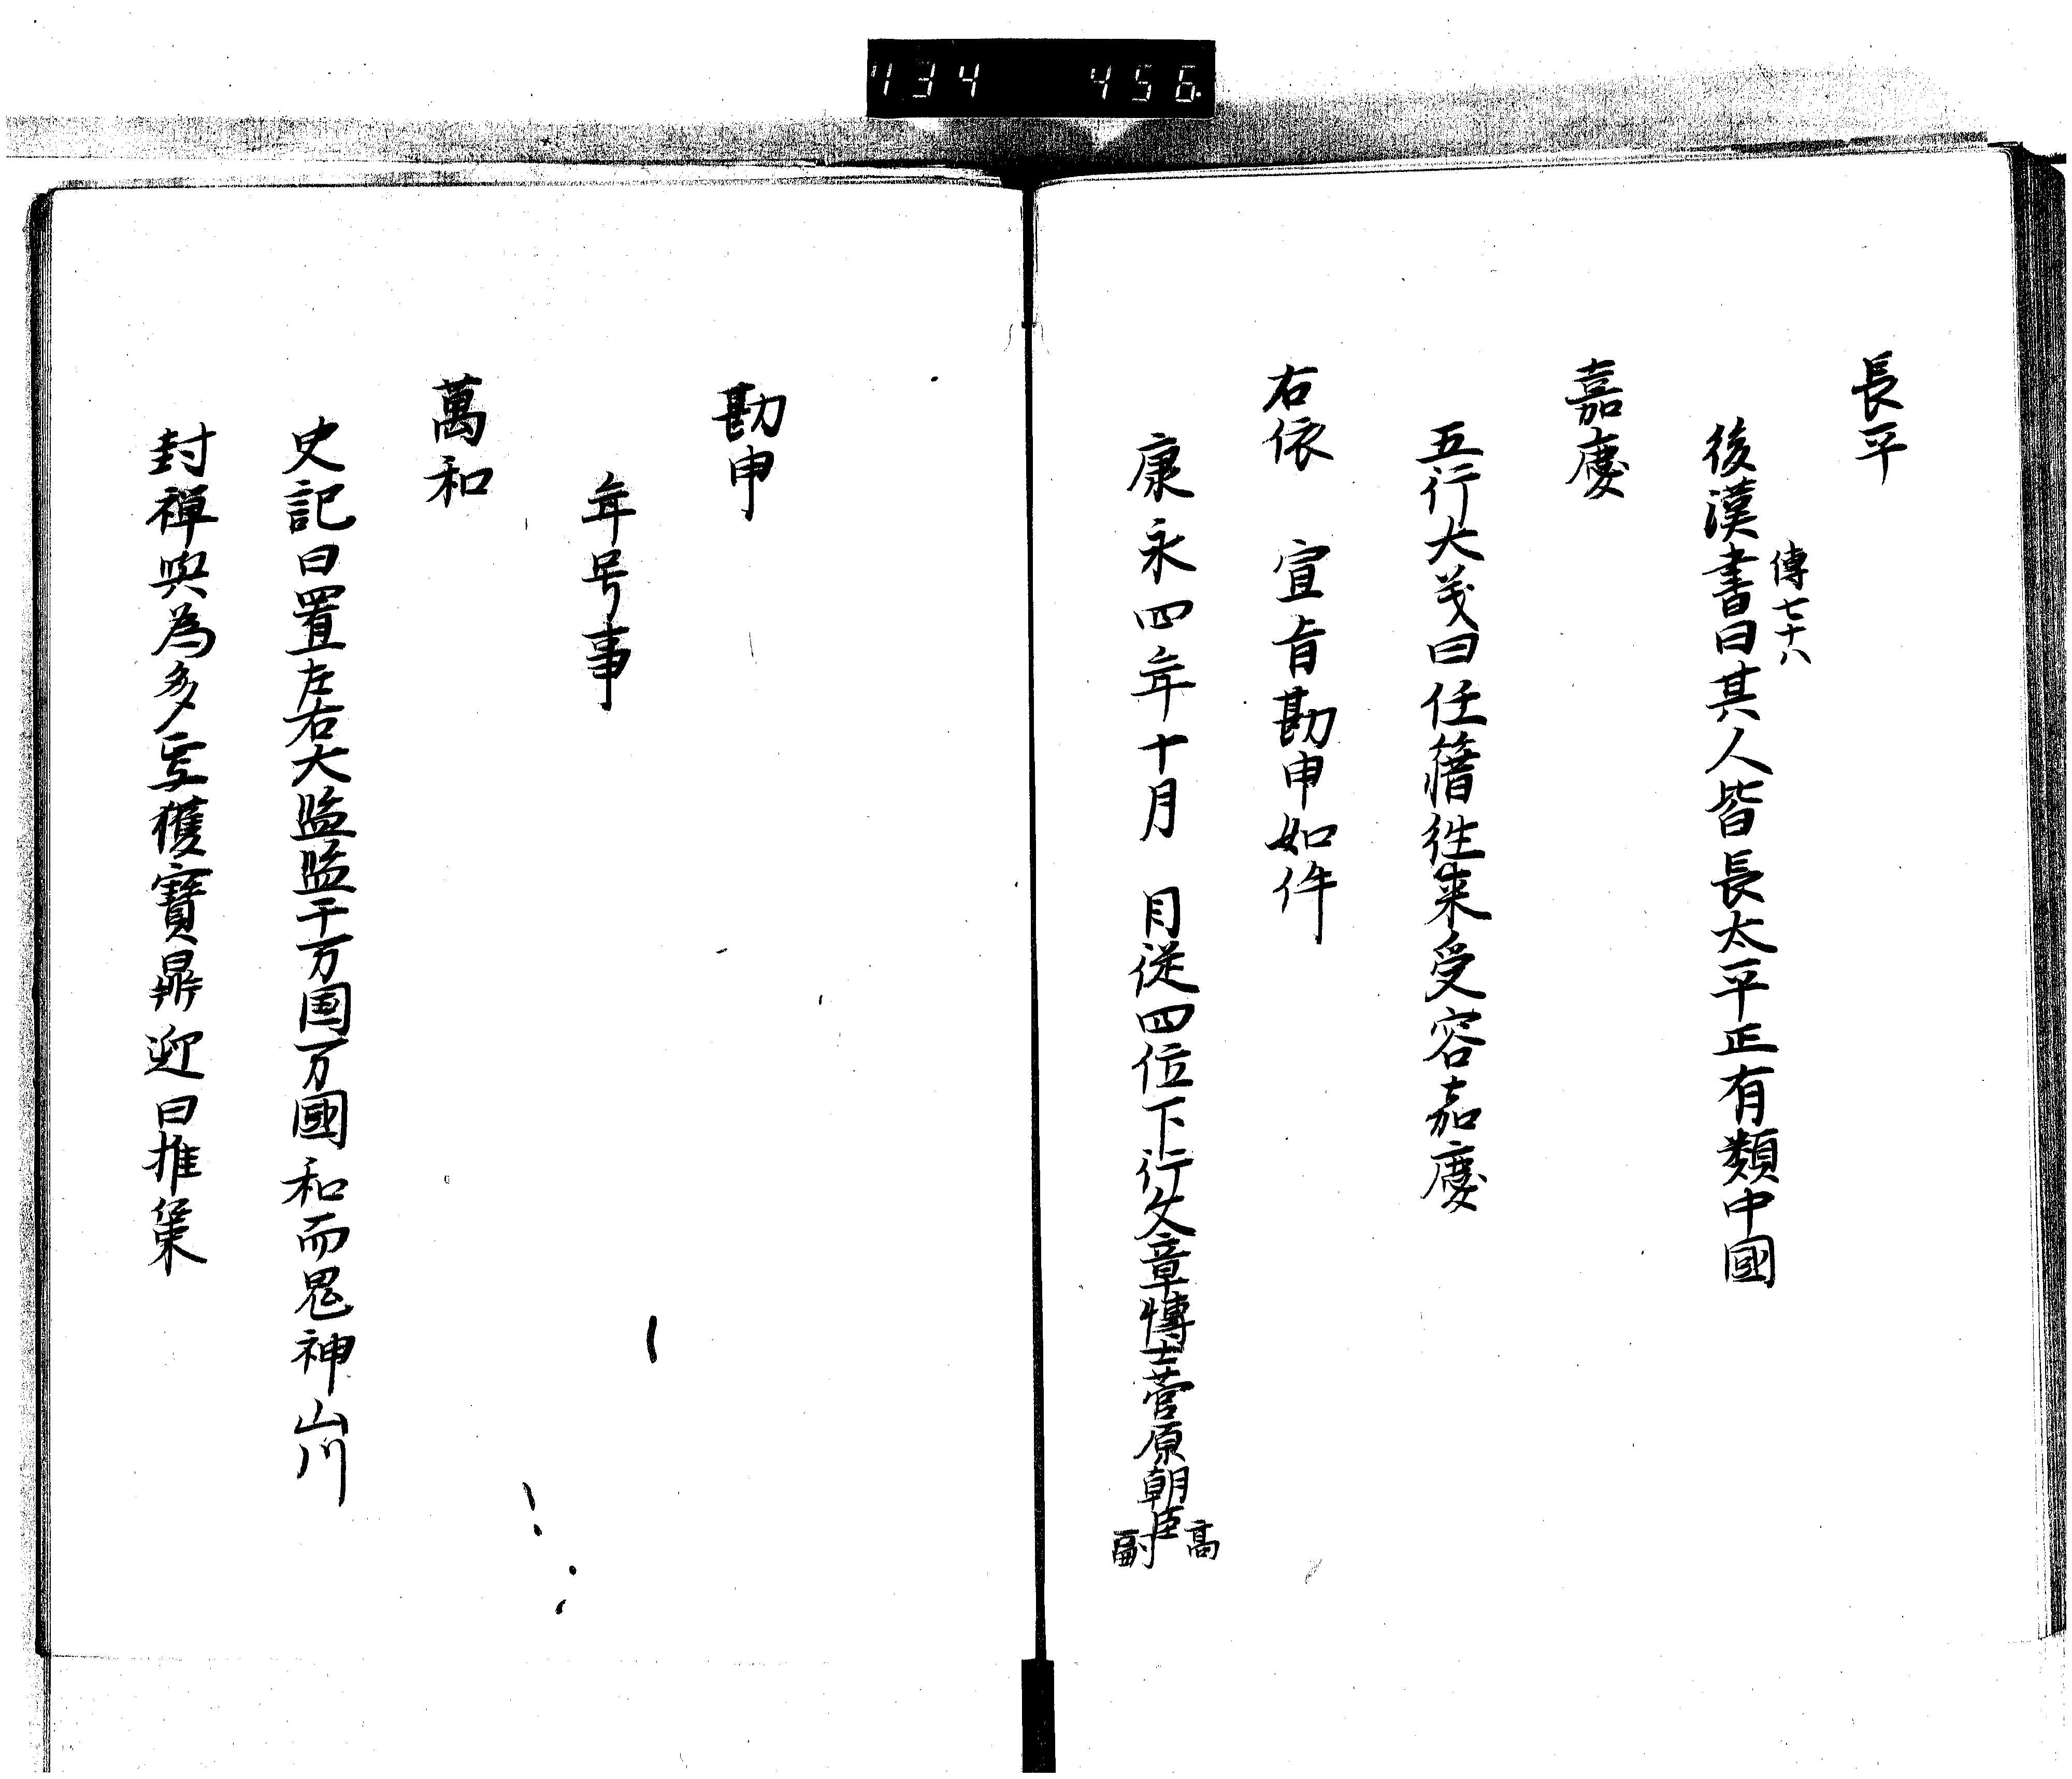 長平
傳七十八
後漢書曰其人皆長太平正有類中國
嘉慶
五行大義曰任籍往来受容嘉慶
右依 宣旨勘申如件
康永四年十月 日従四位下行文章博士菅原朝臣高嗣
勘申
年号事
萬和
史記曰置左右大监监于万国万國和而鬼神山川
封禅與為多焉獲寶鼎迎日推策
734 456